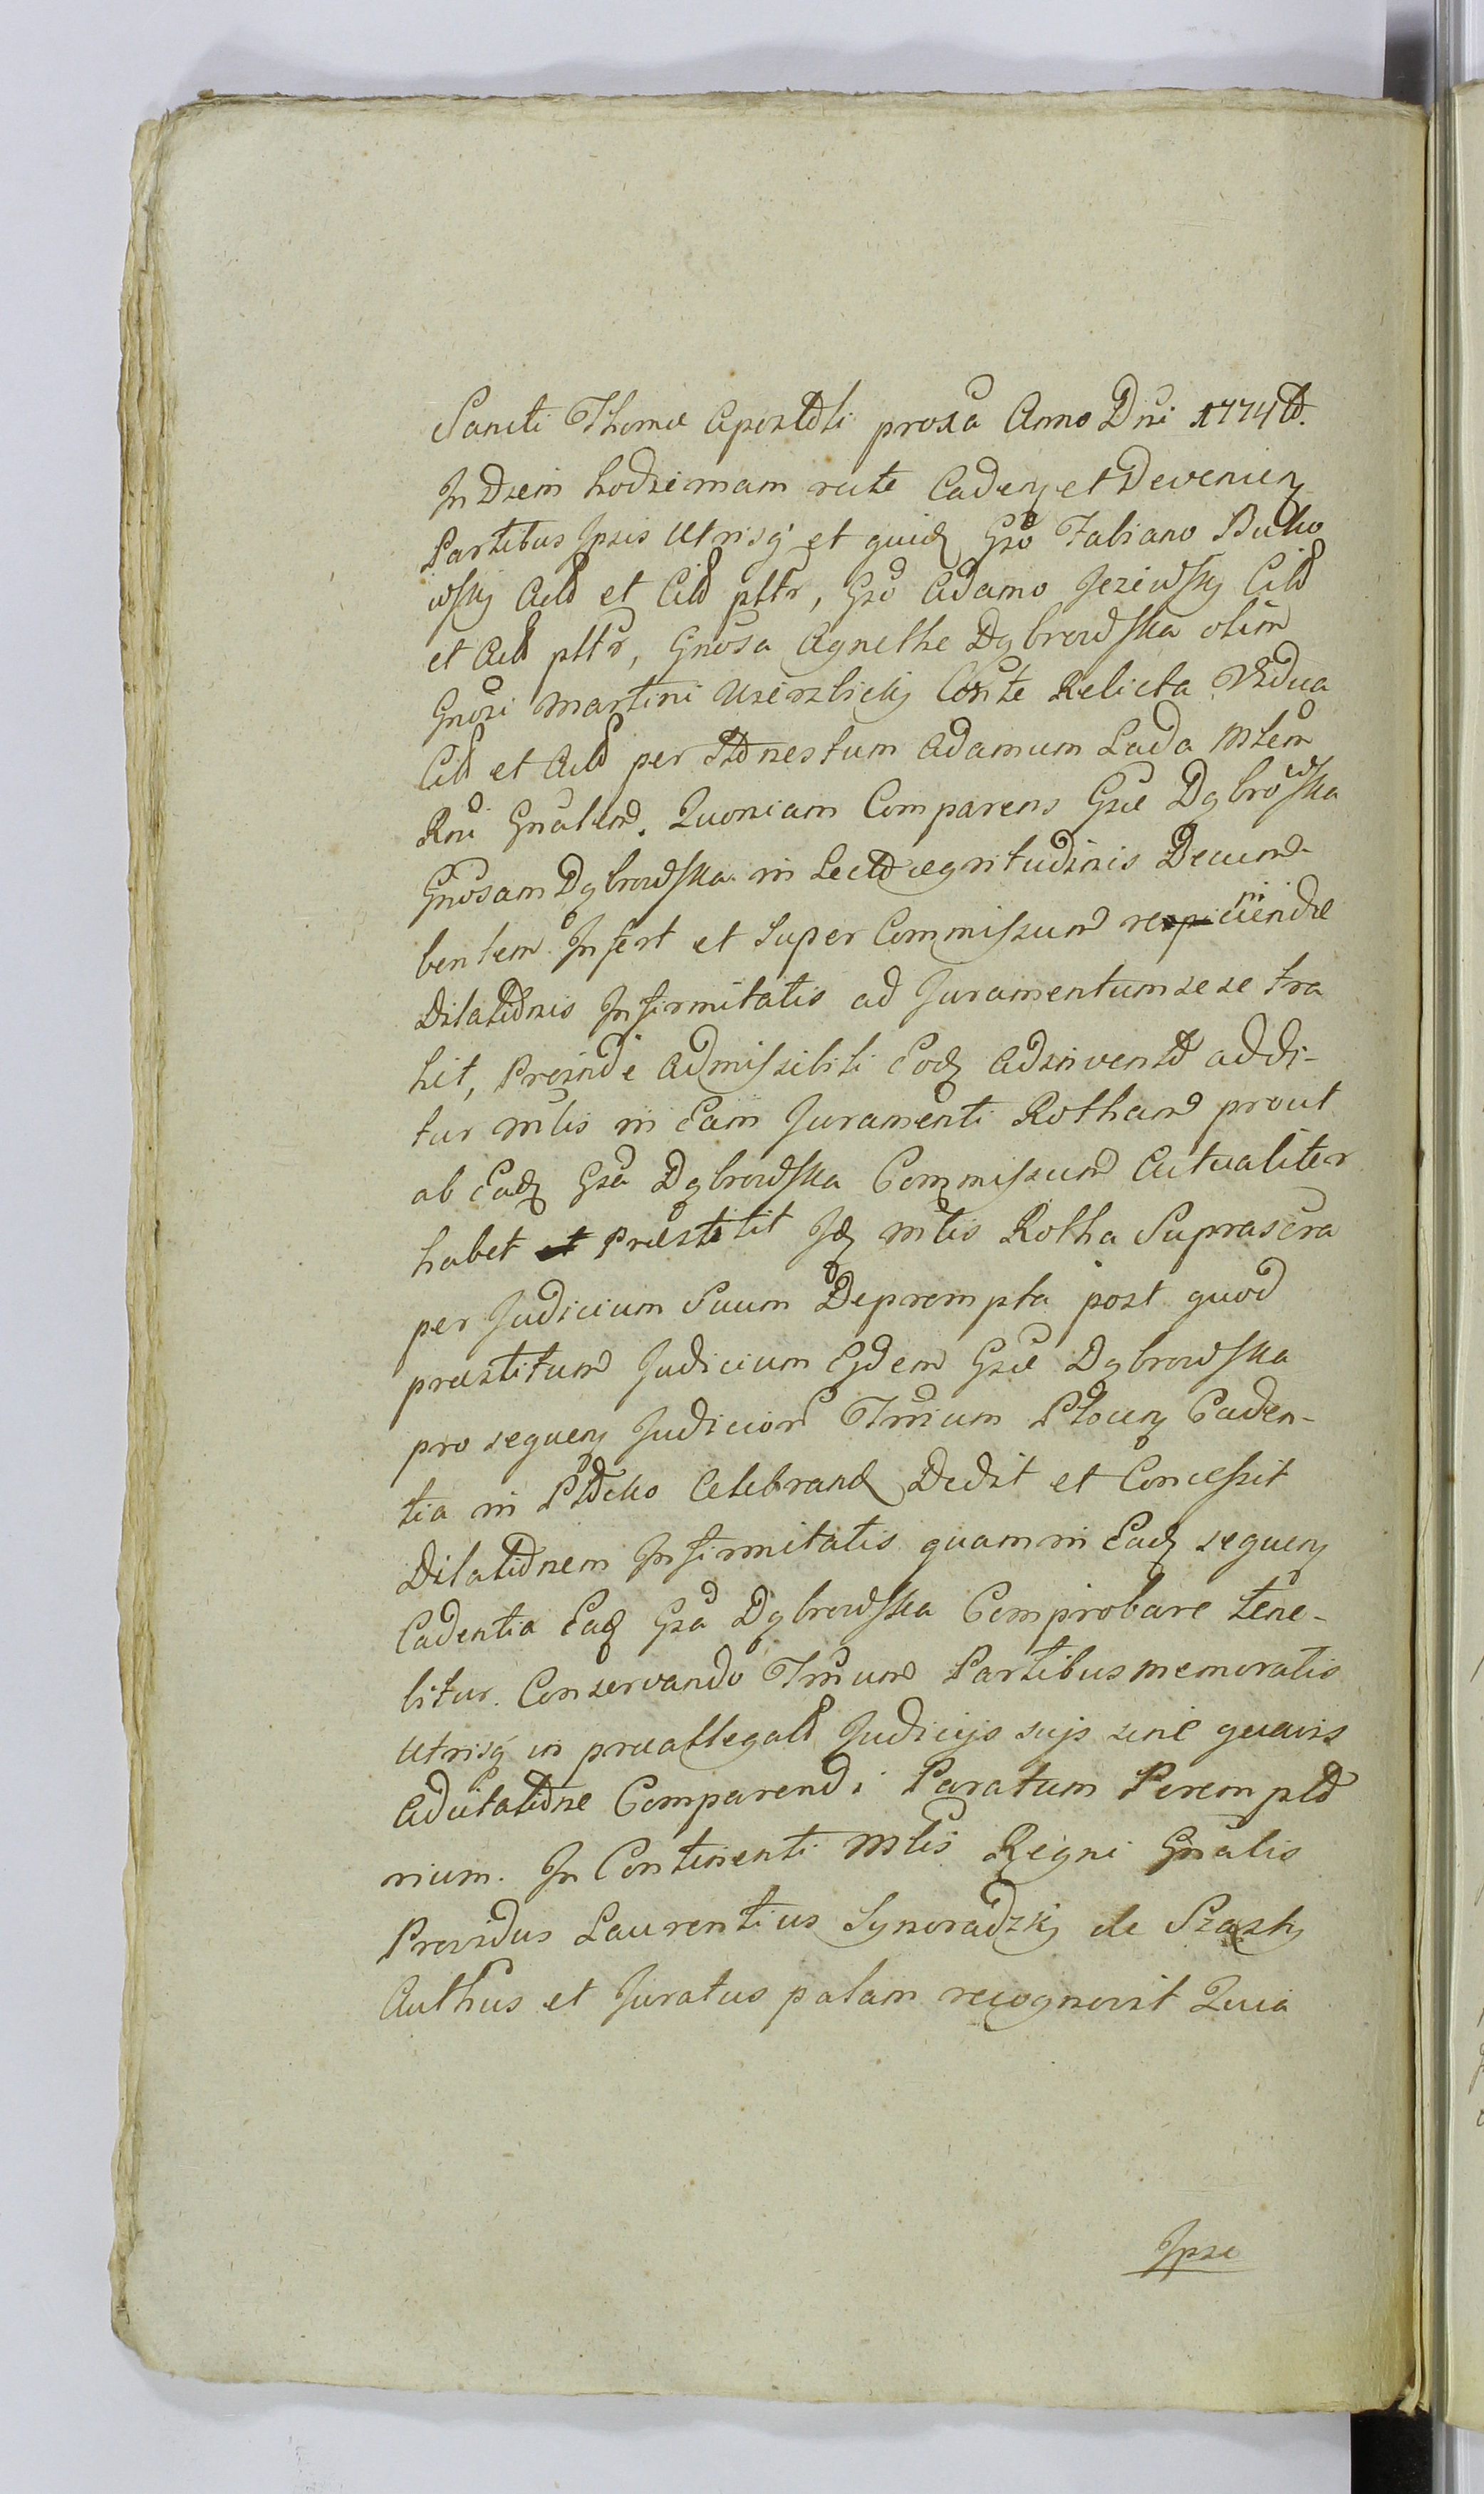 Sancti Thomæ Apostoli proxã Anno Dñi 1774to.
In Diem hodiernam recte Caden et Devenien
Partibus Ipsis Utrisq et quid Gso Fabiano Buko
wski Acto et Cito plttr, Gso Adamo Jeziewski Cito
et Acto plttr, Gnosa Agnethe Dąbrowska olim
Gnosi Martini Uzierzbicki Conte Relicta Vidua
Cito et Acto per Honestum Adamum Lada Mlem
Rni Gnalem. Quoniam Comparens Gsæ Dąbrowska
Gnosam Dąbrowska in Lecto ægritudinis Decum-
bentem Infert et Super Commissum reiiciendæ
Dilationis Infirmitatis ad Juramentum sese tra
hit, Proinde Admissibili Eod Adinvento addi-
tur Mlis in Eam Juramenti Rotham prout
ab Ead Gsa Dąbrowska Commissum Actualiter
habet et Præstitit Id Mlis Rotha Suprascra
per Judicium Suum Deprompta post quod
præstitum Judicium Eydem Gsæ Dąbrowska
pro sequen Judicior Trrium Plocen Caden-
tia in Plocko Celebrand Dedit et Concessit
Dilationem Infirmitatis quam in Ead sequen
Cadentia Ead Gsa Dąbrowska Comprobare tene-
bitur. Conservando Trrium Partibus memoratis
Utrisq in præallegato Judicijs sujs sine quavis
Adcitatione Comparendi Paratum Perempto
rium. In Continenti Mlis Regni Gnalis
Providus Laurentius Synoradzki de Szasty
Authus et Juratus palam recognovit Quia
Ipse